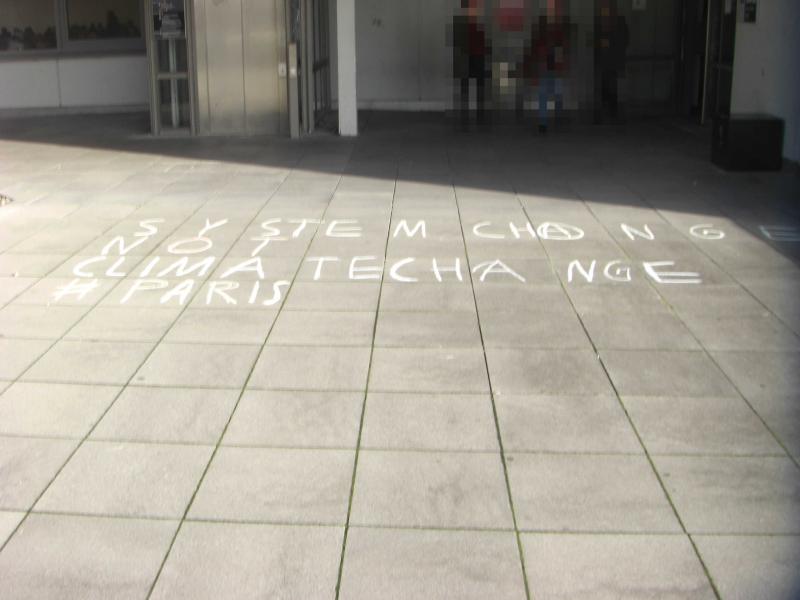 SYSTEM CHANGE
NOT
CLIMATECHANGE
#PARIS